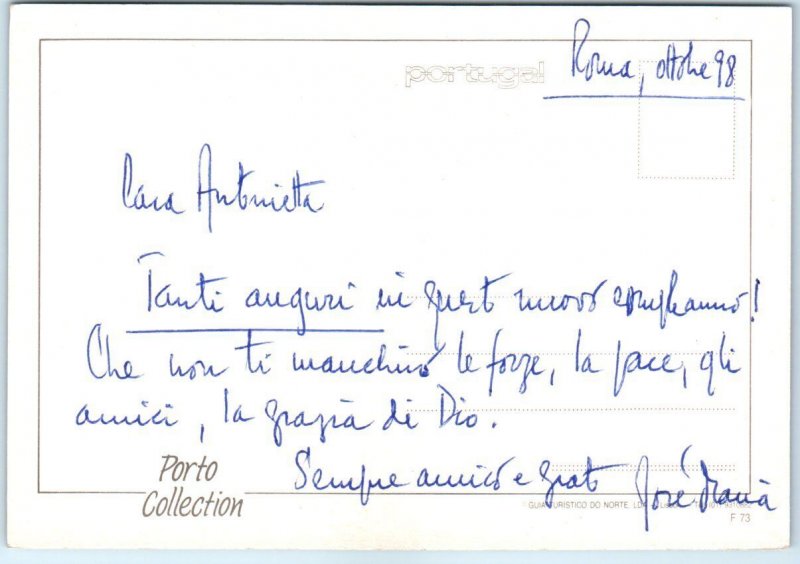 portugal
Roma, ottobre 98
Cara Antonietta
Tanti auguri in quest nuovo compleanno!
Che non ti manchino le forze, la pace, gli
amici, la grazia di Dio.
Sempre amico e grato José Maria
Porto
Collection
GUIA TURÍSTICO DO NORTE, LDA
F 73